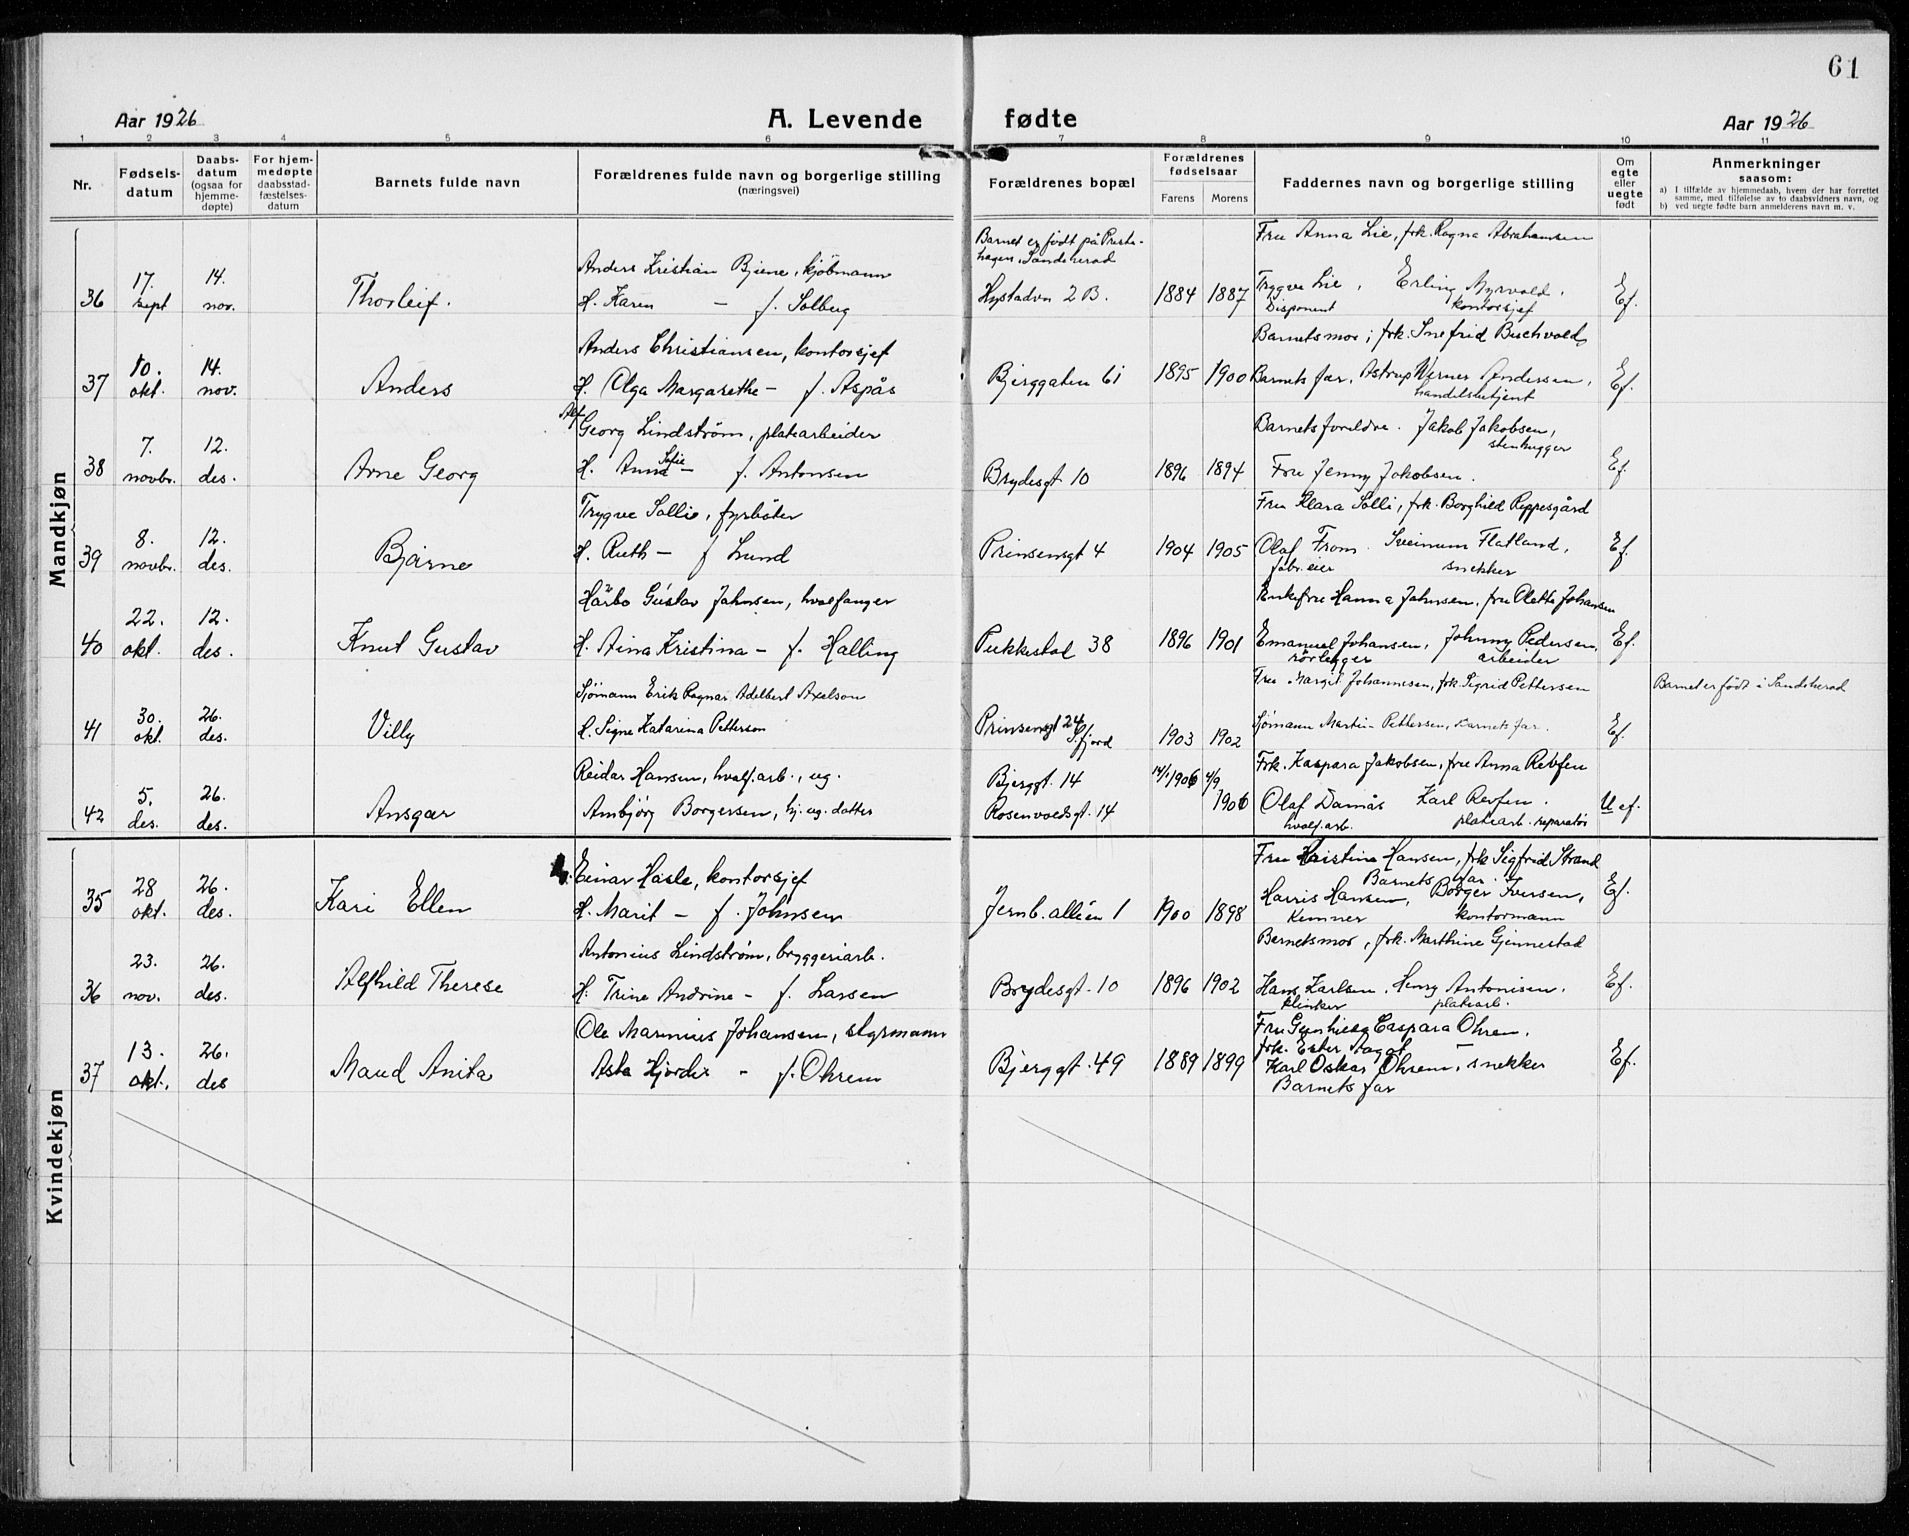 61
Aar 1926
A. Levende fødte
Aar 1926
1 2 3 4 5 6 7 8 9 10 11
Nr.
Fødsels-
datum
Daabs-
datum
(ogsaa for
hjemme-
døpte)
For hjem-
medøpte
daabsstad-
fæstelses-
datum
Barnets fulde navn
Forældrenes fulde navn og borgerlige stilling
(næringsvei)
Forældrenes bopæl
Forældrenes
fødselsaar
Farens Morens
Faddernes navn og borgerlige stilling
Om
egte
eller
uegte
født
Anmerkninger
saasom:
a) I tilfælde av hjemmedaab, hvem der har forrettet
samme, med tilføielse av to daabsvidners navn, og
b) ved uegte fødte barn anmelderens navn m. v.
Mandkjøn
Barnet er født på Preste-
hagen, Sandeherad
Fru Anna Lie, frk. Ragna Abrahamsen
Anders Kristian Bjiene, kjöbmann
36 17. sept 14. nov. Thorleif. H. Karen — f. Solberg Hystadvn 2 B. 1884 1887 Trygve Lie, Erling Myrvold, Ef.
Disponent kontorsjef
Anders Christiansen, kontorsjef
Barnets mor; frk. Snefrid Buchvold,
37 10. okt. 14. nov. Anders H. Olga Margarethe — f. Aspås Bjerggaten 61 1895 1900 Barnets far, Astrup Werner Andersen, Ef.
handelsbetjent
Alf
Georg Lindström, platearbeider
Barnets foreldre. Jakob Jakobsen,
stenhugger
38 7. novbr. 12. des. Arne Georg H. Anna Sofie — f. Antonsen Brydesgt. 10 1896 1894 Fru Jenny Jakobsen. Ef.
Trygve Sollie, fyrböter
Fru Klara Solli, frk. Borghild Reppesgård
39 8. novbr. 12. des. Bjarne H. Ruth — f Lund Prinsensgt 4 1904 1905 Olaf From. Sveinum Flatland, Ef.
fabr. eier snekker
Hårbo Gustav Jahnsen, hvalfanger
Enkefru Hanna Jahnsen, fru Olette Johansen
40 22. okt. 12. des. Knut Gustav H. Aina Kristina — f. Halling Pukkestad 38 1896 1901 Emanuel Johansen, Johnny Pedersen, Ef.
rörlegger arbeider
Sjömann Erik Ragnar Adelbert Axelson
Fru Margit Johannesen, frk. Sigrid Pettersen
Barnet er födt i Sandeherad
41 30. okt. 26. des. Villy H. Signe Katarina Petterson Prinsensgt 24 S.fjord 1903 1902 Sjömann Martin Pettersen, Barnets far. Ef.
Reidar Hansen, hvalf.arb., ug. Bjerggt. 14 14/1 1906 4/9 1906
Frk. Kaspara Jakobsen, fru Anna Revfen
42 5. des. 26. des. Ansgar Ambjørg Borgersen, hj. ug. datter Rosenvoldsgt. 14 Olaf Damås Karl Revfen. Uef.
hvalf.arb. platearb. reparatör
Kvindekjøn
Einar Hasle, kontorsjef
Fru Kristine Hansen, frk Sigfrid Strand
Barnets far.
35 28 okt. 26. des. Kari Ellen H. Marit — f. Johnsen Jernb. alléen 1 1900 1898 Harris Hansen, Borger Iversen, Ef.
Kemner kontormann
Antonius Lindstrøm, bryggeriarb.
Barnets mor, frk. Marthine Gjennestad
36 23. nov. 26. des. Alfhild Therese H. Trine Andrine — f. Larsen Brydesgt. 10 1896 1902 Hans Karlsen, Henry Antonisen. Ef.
klinker platearb.
Ole Marinius Johansen, styrmann
Fru Caspara Ohren.
frk. Ester Aagot —
37 13. okt. 26. des Maud Anita Asta Hjördis — f. Ohrem Bjerggt. 49 1889 1899 Karl Oskar Ohrem, snekker Ef.
Barnets far